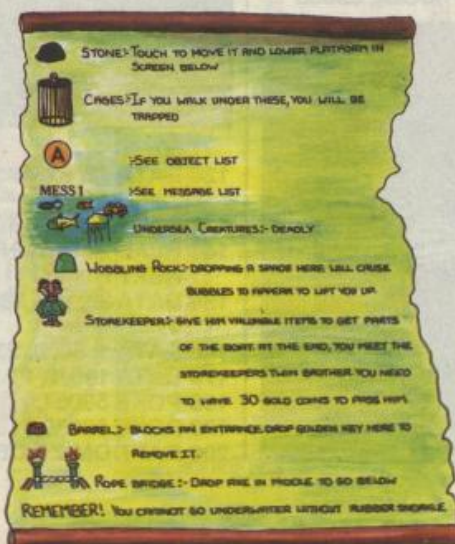 STONE:- TOUCH TO MOVE IT AND LOWER PLATFORM IN
SCREEN BELOW
CAGES:- IF YOU WALK UNDER THESE, YOU WILL BE
TRAPPED
A :-SEE OBJECT LIST
MESS 1 :-SEE MESSAGE LIST
UNDERSEA CREATURES:- DEADLY
WOBBLING ROCK:- DROPPING A SPADE HERE WILL CAUSE
BUBBLES TO APPEAR TO LIFT YOU UP.
STOREKEEPER:- GIVE HIM VALUABLE ITEMS TO GET PARTS
OF THE BOAT. AT THE END, YOU MEET THE
STOREKEEPERS TWIN BROTHER YOU NEED
TO HAVE 30 GOLD COINS TO PASS HIM.
BARREL:- BLOCKS AN ENTRANCE. DROP GOLDEN KEY HERE TO
REMOVE IT.
ROPE BRIDGE:- DROP AXE IN MIDDLE TO GO BELOW
REMEMBER! YOU CANNOT GO UNDERWATER WITHOUT RUBBER SNORKLE